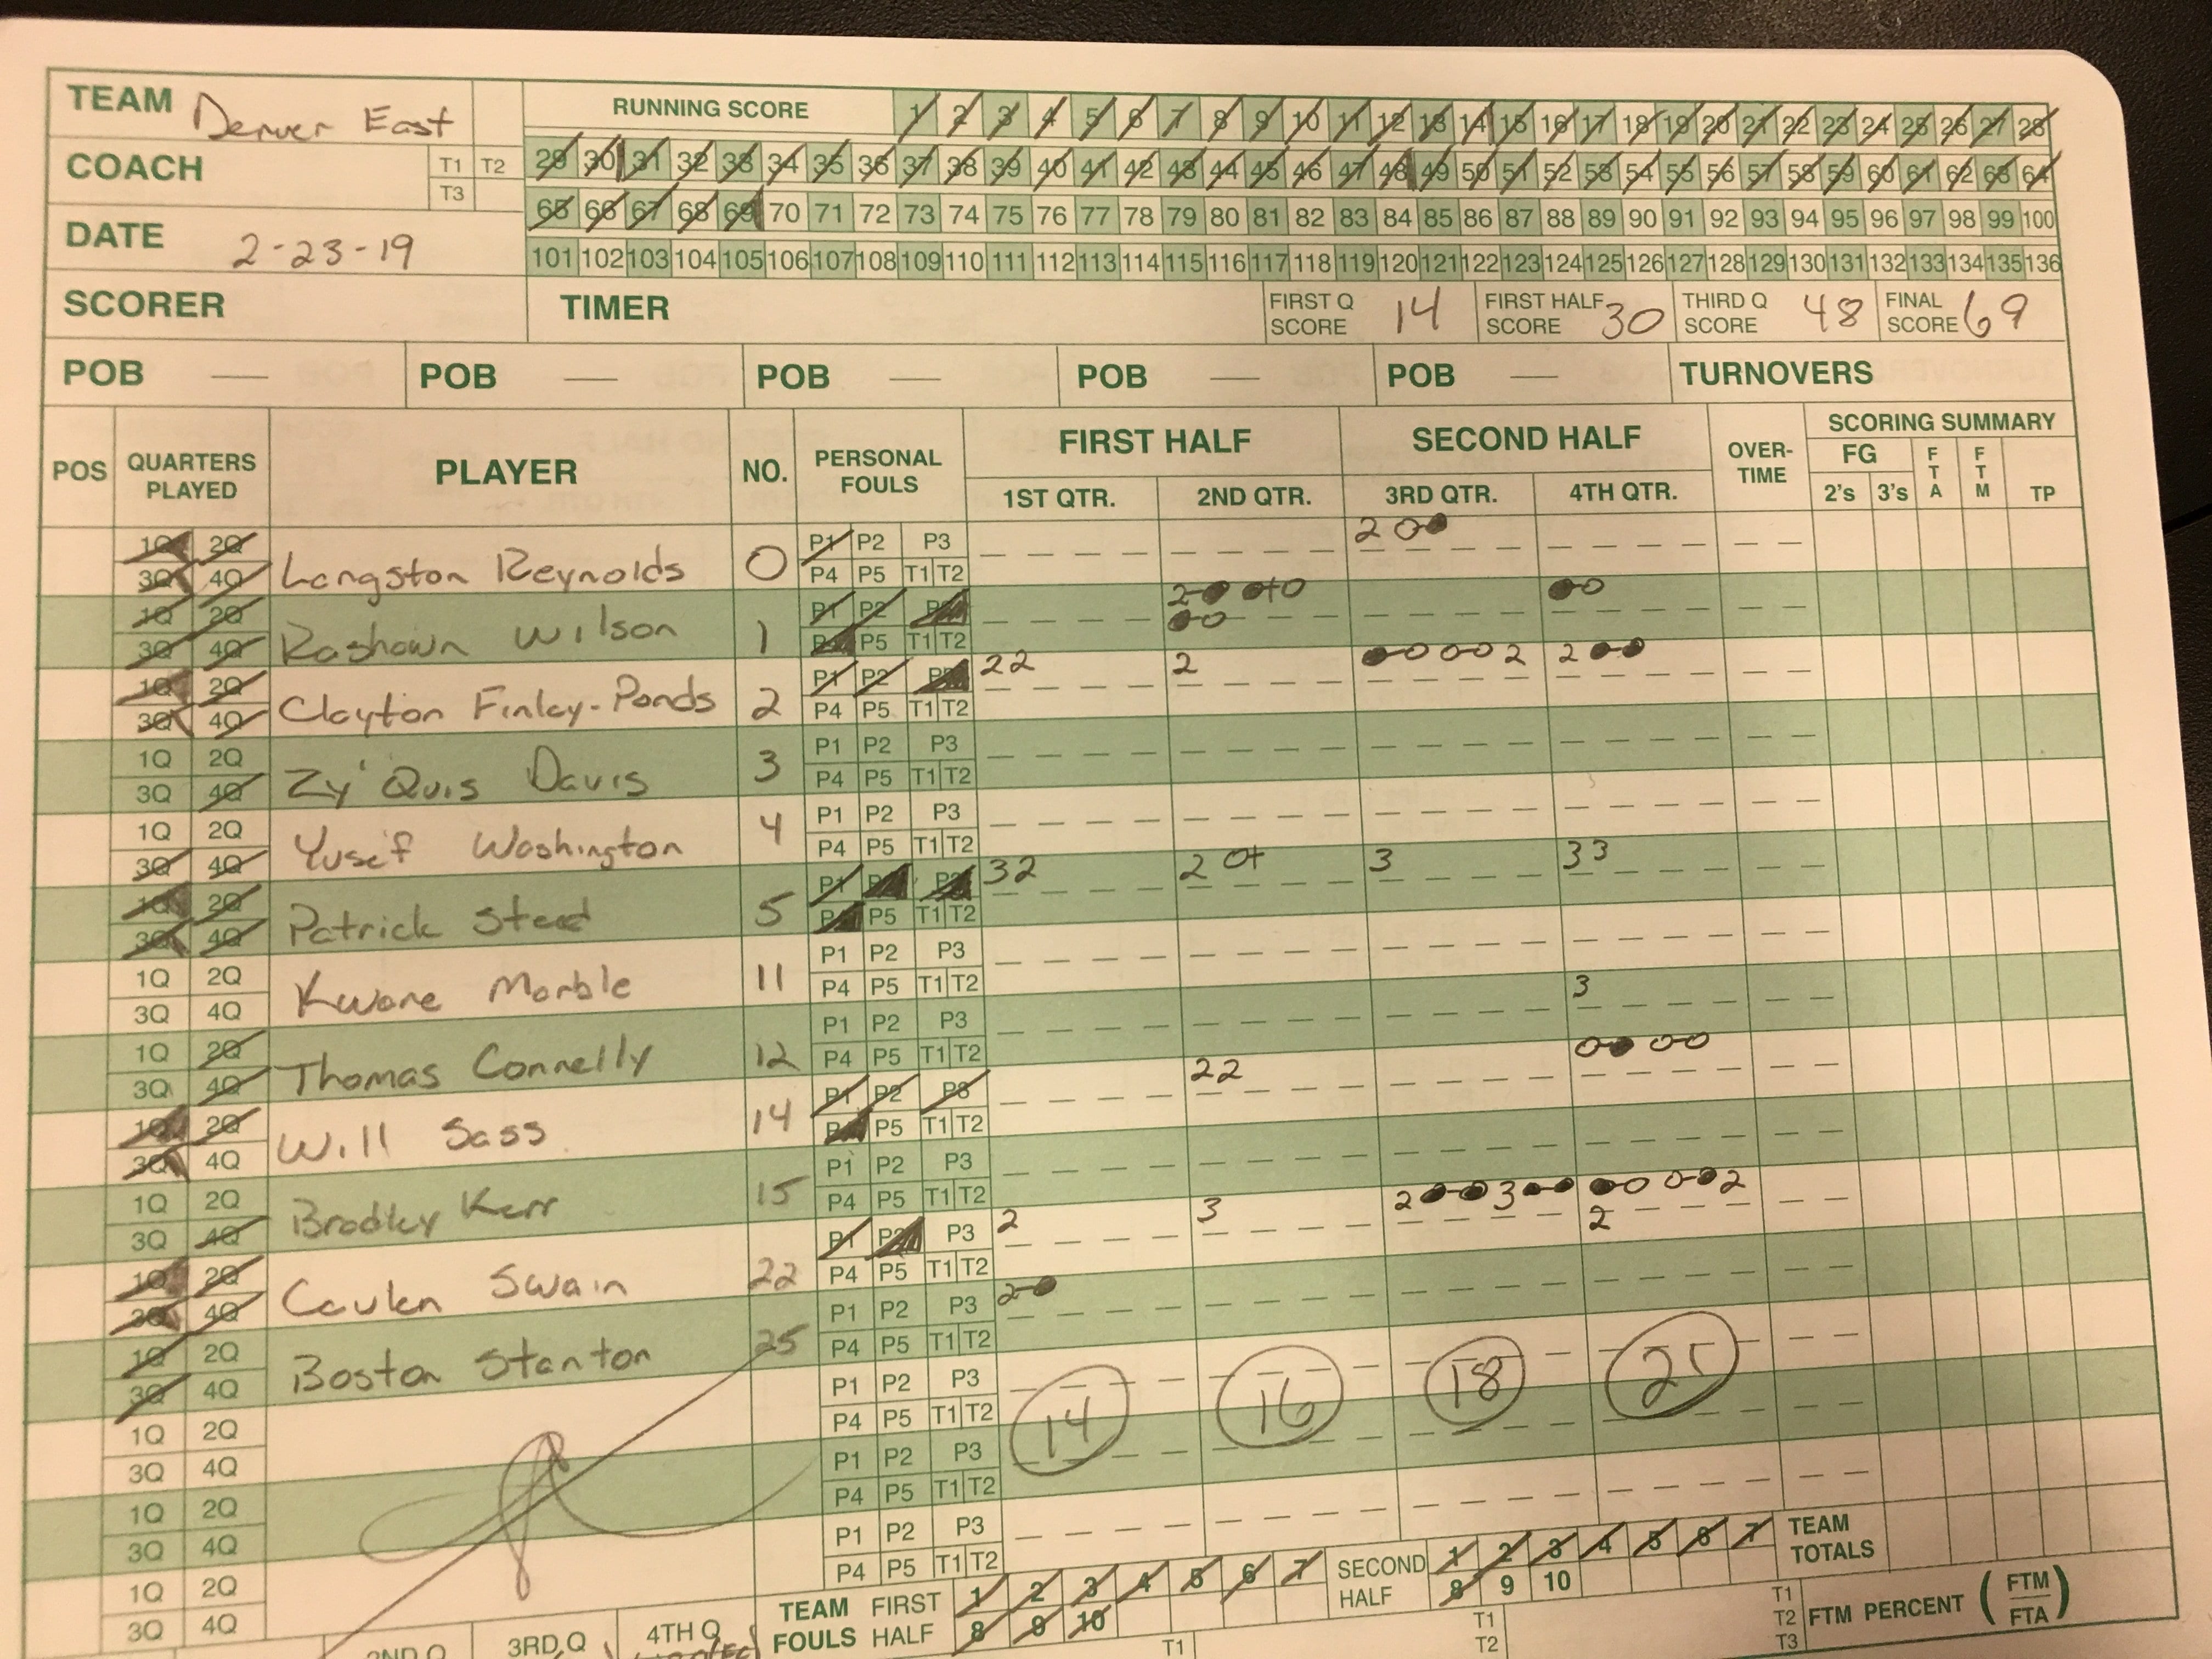 TEAM Denver East
RUNNING SCORE 1 2 3 4 5 6 7 8 9 10 11 12 13 14 15 16 17 18 19 20 21 22 23 24 25 26 27 28
COACH T1 T2 T3
29 30 31 32 33 34 35 36 37 38 39 40 41 42 43 44 45 46 47 48 49 50 51 52 53 54 55 56 57 58 59 60 61 62 63 64
65 66 67 68 69 70 71 72 73 74 75 76 77 78 79 80 81 82 83 84 85 86 87 88 89 90 91 92 93 94 95 96 97 98 99 100
DATE 2-23-19
101 102 103 104 105 106 107 108 109 110 111 112 113 114 115 116 117 118 119 120 121 122 123 124 125 126 127 128 129 130 131 132 133 134 135 136
SCORER TIMER FIRST Q SCORE 14 FIRST HALF SCORE 30 THIRD Q SCORE 48 FINAL SCORE 69
POB — POB — POB — POB — POB — TURNOVERS
POS QUARTERS PLAYED PLAYER NO. PERSONAL FOULS FIRST HALF SECOND HALF OVER-TIME SCORING SUMMARY
1ST QTR. 2ND QTR. 3RD QTR. 4TH QTR. FG 2's 3's FTA FTM TP
1Q 2Q 3Q 4Q Langston Reynolds 0 P1 P2 P3 P4 P5 T1 T2 2 0
1Q 2Q 3Q 4Q Rashawn Wilson 1 P1 P2 P3 P4 P5 T1 T2 2
1Q 2Q 3Q 4Q Clayton Finley-Ponds 2 P1 P2 P3 P4 P5 T1 T2 22 2 2 2
1Q 2Q 3Q 4Q Zy'Quis Davis 3 P1 P2 P3 P4 P5 T1 T2
1Q 2Q 3Q 4Q Yusef Washington 4 P1 P2 P3 P4 P5 T1 T2
1Q 2Q 3Q 4Q Patrick Stead 5 P1 P2 P3 P4 P5 T1 T2 32 2 3 33
1Q 2Q 3Q 4Q Kware Marble 11 P1 P2 P3 P4 P5 T1 T2
1Q 2Q 3Q 4Q Thomas Connelly 12 P1 P2 P3 P4 P5 T1 T2 3
1Q 2Q 3Q 4Q Will Sass 14 P1 P2 P3 P4 P5 T1 T2 22
1Q 2Q 3Q 4Q Bradley Kerr 15 P1 P2 P3 P4 P5 T1 T2
1Q 2Q 3Q 4Q Caulen Swain 22 P1 P2 P3 P4 P5 T1 T2 2 3 2 3 2 2
1Q 2Q 3Q 4Q Boston Stanton 25 P1 P2 P3 P4 P5 T1 T2 2
1Q 2Q 3Q 4Q P1 P2 P3 P4 P5 T1 T2 14 16 18 21
1Q 2Q 3Q 4Q P1 P2 P3 P4 P5 T1 T2
1Q 2Q 3Q 4Q P1 P2 P3 P4 P5 T1 T2
TEAM FOULS FIRST HALF 1 2 3 4 5 6 7 8 9 10 SECOND HALF 1 2 3 4 5 6 7 8 9 10 TEAM TOTALS
2ND Q 3RD Q 4TH Q T1 T1 T2 T1 T2 T3 FTM PERCENT (FTM FTA)